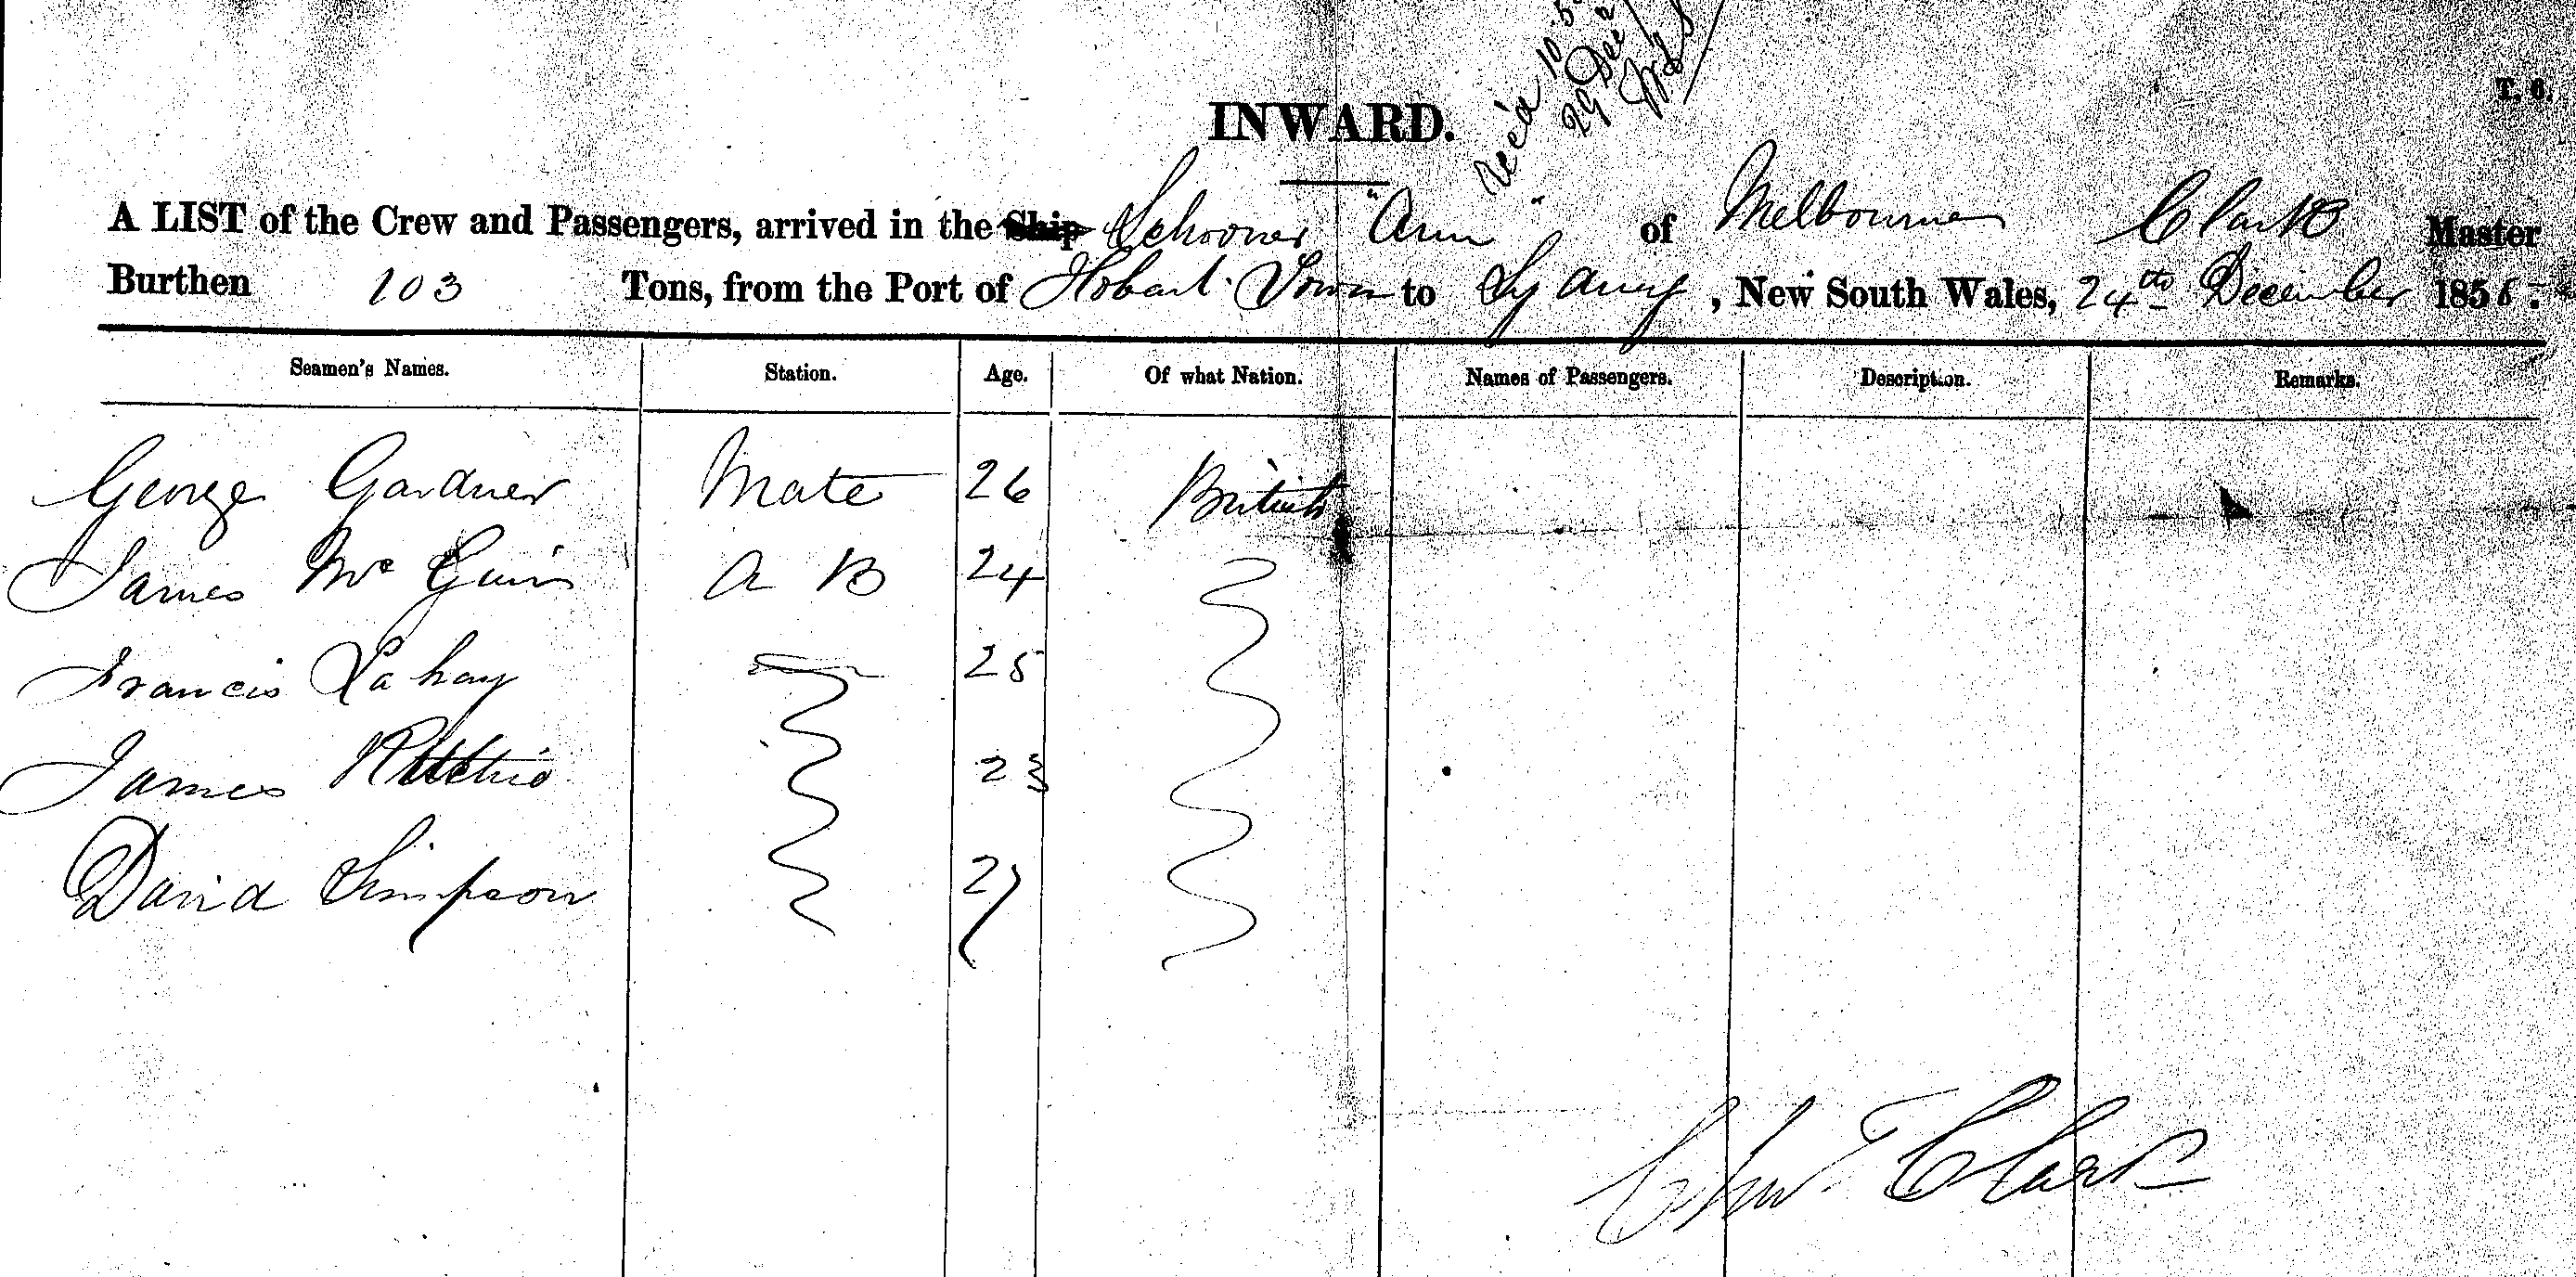 T. 6.
Rec'd 10.5
29 Dec
INWARD.
A LIST of the Crew and Passengers, arrived in the Ship Schooner "Ann" of Melbourne Clark Master
Burthen 103 Tons, from the Port of Hobart Town to Sydney, New South Wales, 24th December 185
Seamen's Names. Station. Age. Of what Nation. Names of Passengers. Description. Remarks.
George Gardner Mate 26 British
James Mc A B 24
Francis Lahay 25
James Ritchie 23
David Simpson 27
John T Clark